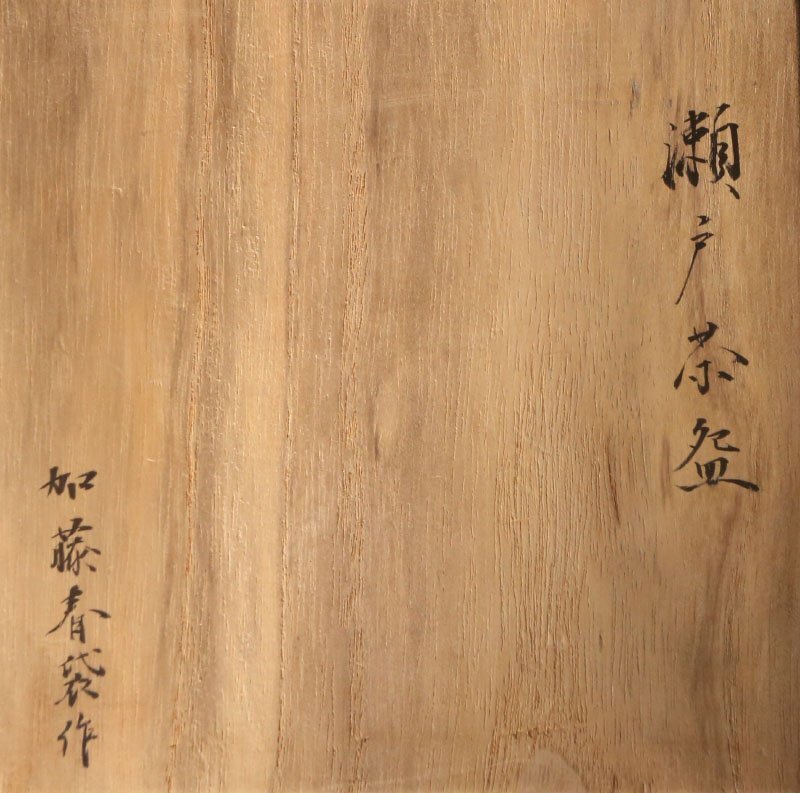 瀬戸茶盌
加藤春袋作